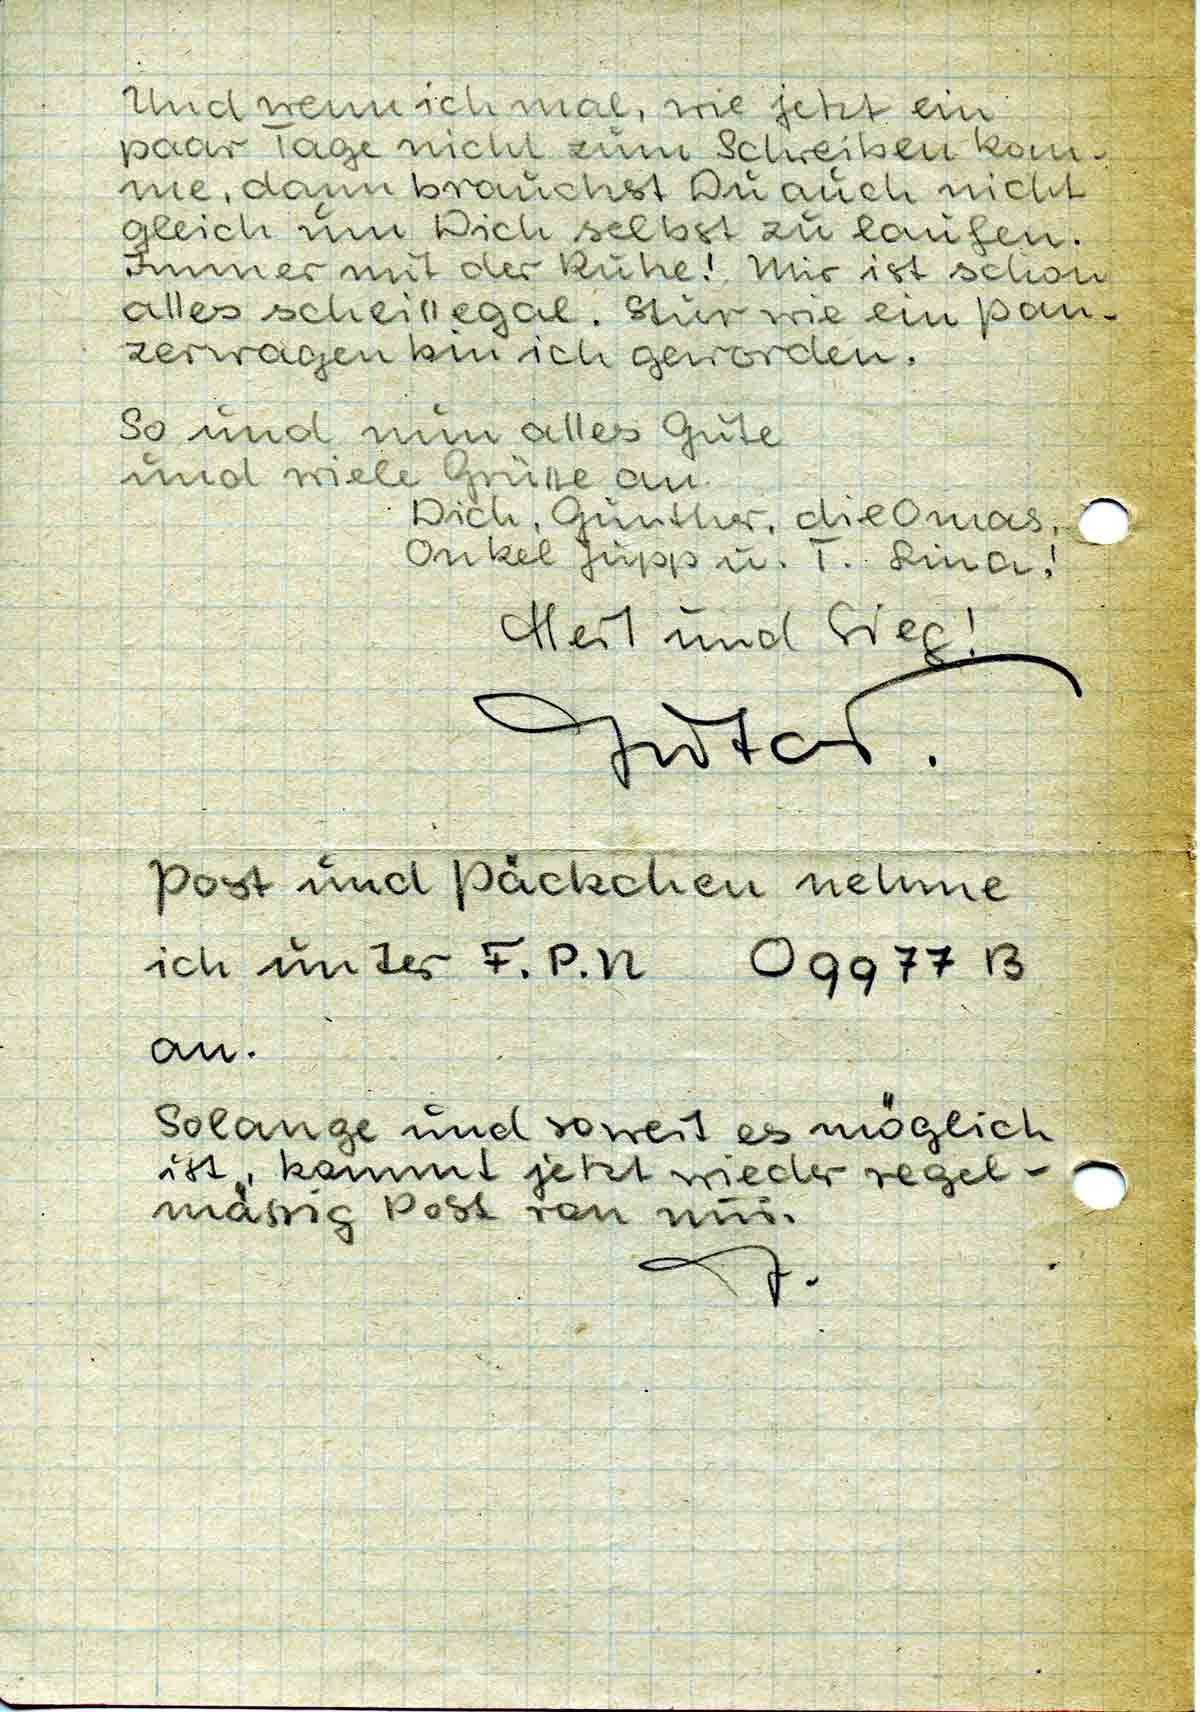 Und wenn ich mal, wie jetzt ein
paar Tage nicht zum Schreiben kom-
me, dann brauchst Du auch nicht
gleich um Dich selbst zu laufen.
Immer mit der Ruhe! Mir ist schon
alles scheißegal. Stur wie ein Pan-
zerwagen bin ich geworden.
So und nun alles Gute
und viele Grüße an
Dich, Günther, die Omas,
Onkel Jupp u. T. Lina!
Heil und Sieg!
Post und Päckchen nehme
ich unter F.P.N 09977 B
an.
Solange und soweit es möglich
ist, kommt jetzt wieder regel-
mässig Post von mir.